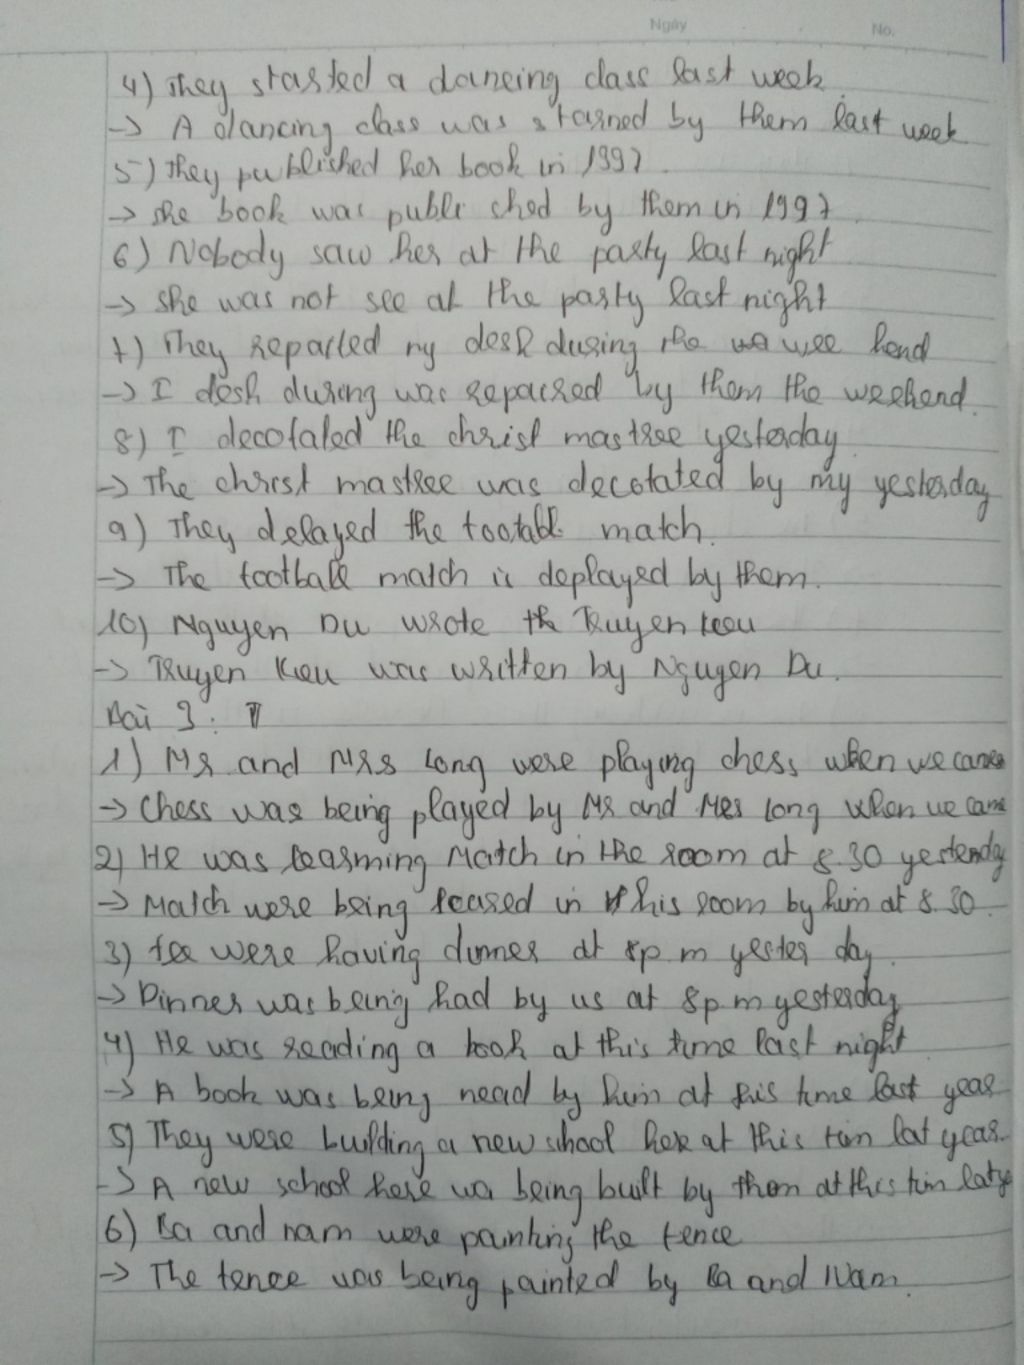 Ngày No.
4) They started a dancing class last week
-> A dancing class was starned by them last week
5) They published her book in 1997.
-> she book was publi ched by them in 1997
6) Nobody saw her at the party last night
-> she was not see at the party last night
7) They repacled my desk during the wee kend
-> I desk during was repacred by them the weekend.
8) I decotaled the christ mastree yesterday
-> The christ mastree was decotated by my yesterday
9) They delayed the tootabll match.
-> The football match is deplayed by them.
10) Nguyen Du wrote th Truyen keu
-> Truyen Kieu was written by Nguyen Du.
Bài 3:
1) Mr and Mrs Long were playing chess when we came
-> Chess was being played by Mr and Mrs long when we came
2) He was learming Match in the room at 8.30 yesterday
-> Match were being leared in this room by him at 8.30.
3) were having dinner at 8p.m yester day.
-> Dinner was being had by us at 8p.m yesterday
4) He was reading a book at this time last night
-> A book was being nead by him at this time last year
5) They were building a new school here at this tim lat year.
-> A new school here wa being built by them at this tim laty
6) Ba and nam were painting the tence
-> The tence was being painted by Ba and Nam.